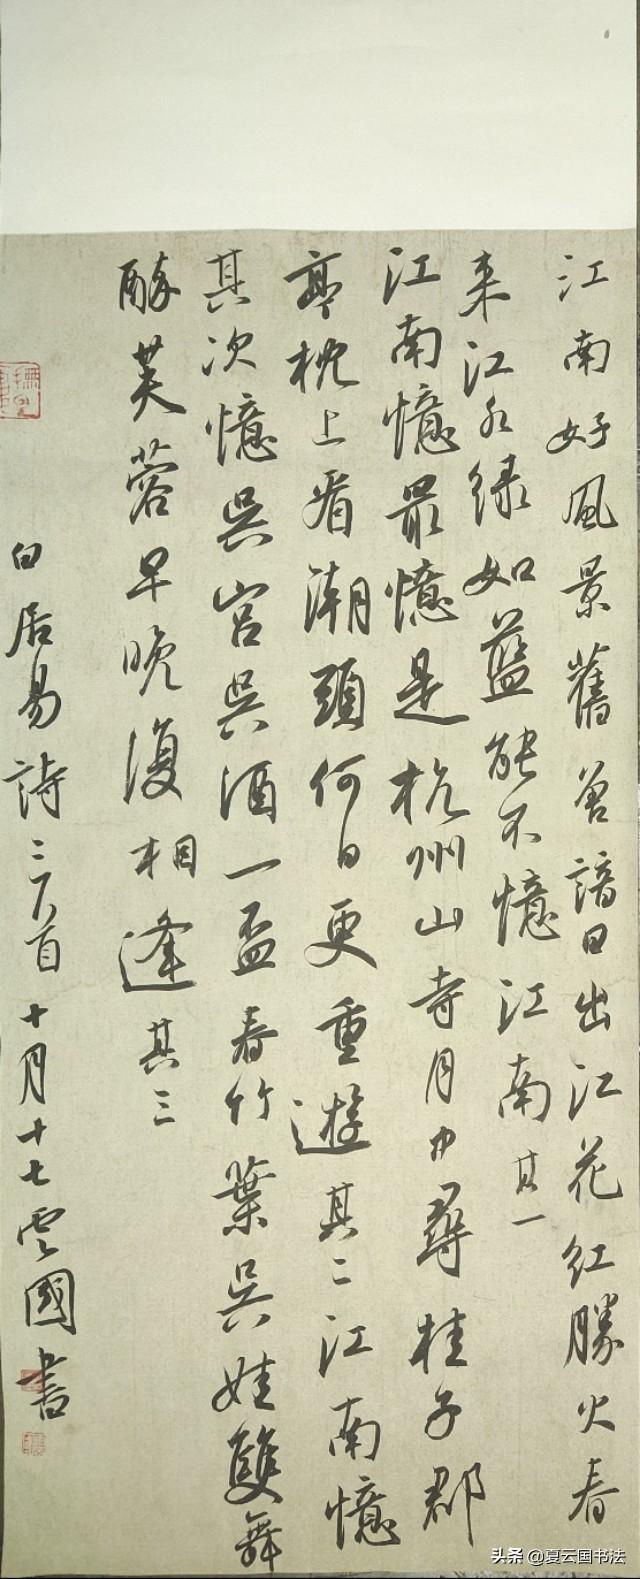 江南好風景舊曾諳日出江花红勝火春
来江水绿如蓝能不憶江南其一
江南憶最憶是杭州山寺月中尋桂子郡
亭枕上看潮頭何日更重遊其二江南憶
其次憶吳宮吳酒一盃春竹葉吳娃雙舞
醉芙蓉早晚復相逢其三
白居易詩三首十月十七雲國書
头条@夏云国书法